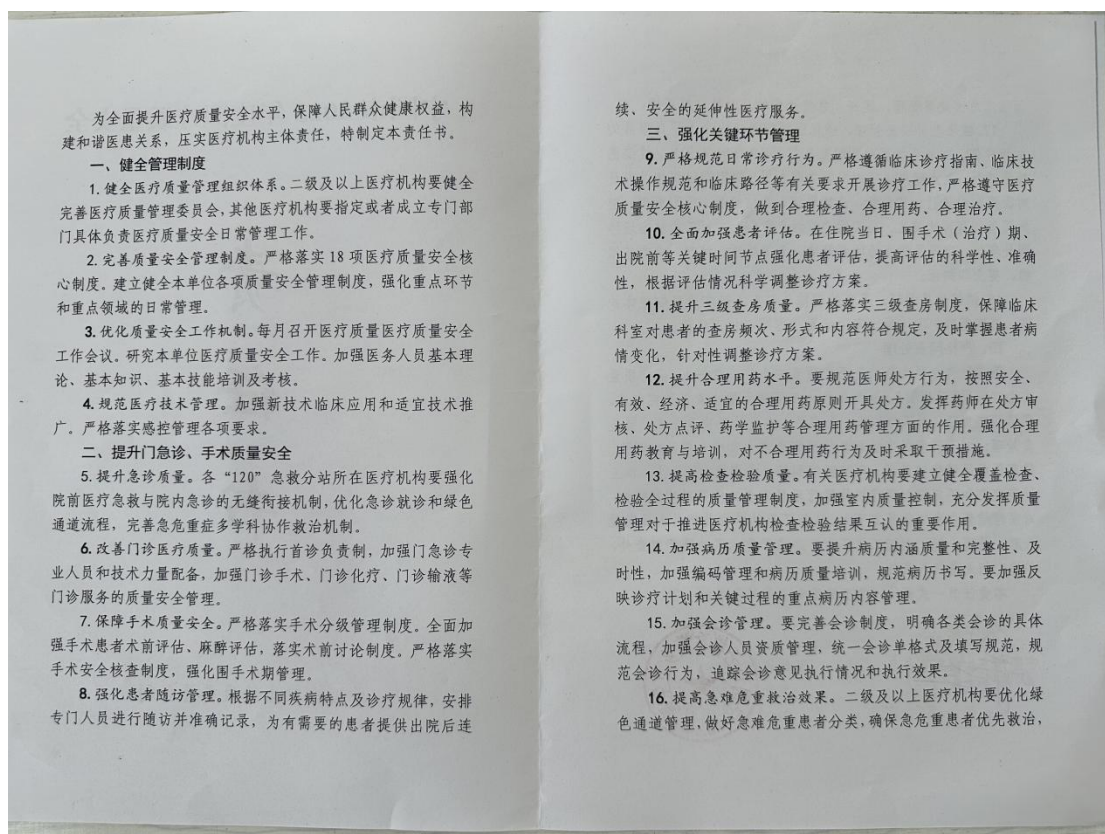 为全面提升医疗质量安全水平，保障人民群众健康权益，构
建和谐医患关系，压实医疗机构主体责任，特制定本责任书。
一、健全管理制度
1. 健全医疗质量管理组织体系。二级及以上医疗机构要健全
完善医疗质量管理委员会，其他医疗机构要指定或者成立专门部
门具体负责医疗质量安全日常管理工作。
2. 完善质量安全管理制度。严格落实 18 项医疗质量安全核
心制度。建立健全本单位各项质量安全管理制度，强化重点环节
和重点领域的日常管理。
3. 优化质量安全工作机制。每月召开医疗质量医疗质量安全
工作会议。研究本单位医疗质量安全工作。加强医务人员基本理
论、基本知识、基本技能培训及考核。
4. 规范医疗技术管理。加强新技术临床应用和适宜技术推
广。严格落实感控管理各项要求。
二、提升门急诊、手术质量安全
5. 提升急诊质量。各“120”急救分站所在医疗机构要强化
院前医疗急救与院内急诊的无缝衔接机制，优化急诊就诊和绿色
通道流程，完善急危重症多学科协作救治机制。
6. 改善门诊医疗质量。严格执行首诊负责制，加强门急诊专
业人员和技术力量配备，加强门诊手术、门诊化疗、门诊输液等
门诊服务的质量安全管理。
7. 保障手术质量安全。严格落实手术分级管理制度。全面加
强手术患者术前评估、麻醉评估，落实术前讨论制度。严格落实
手术安全核查制度，强化围手术期管理。
8. 强化患者随访管理。根据不同疾病特点及诊疗规律，安排
专门人员进行随访并准确记录，为有需要的患者提供出院后连
续、安全的延伸性医疗服务。
三、强化关键环节管理
9. 严格规范日常诊疗行为。严格遵循临床诊疗指南、临床技
术操作规范和临床路径等有关要求开展诊疗工作，严格遵守医疗
质量安全核心制度，做到合理检查、合理用药、合理治疗。
10. 全面加强患者评估。在住院当日、围手术（治疗）期、
出院前等关键时间节点强化患者评估，提高评估的科学性、准确
性，根据评估情况科学调整诊疗方案。
11. 提升三级查房质量。严格落实三级查房制度，保障临床
科室对患者的查房频次、形式和内容符合规定，及时掌握患者病
情变化，针对性调整诊疗方案。
12. 提升合理用药水平。要规范医师处方行为，按照安全、
有效、经济、适宜的合理用药原则开具处方。发挥药师在处方审
核、处方点评、药学监护等合理用药管理方面的作用。强化合理
用药教育与培训，对不合理用药行为及时采取干预措施。
13. 提高检查检验质量。有关医疗机构要建立健全覆盖检查、
检验全过程的质量管理制度，加强室内质量控制，充分发挥质量
管理对于推进医疗机构检查检验结果互认的重要作用。
14. 加强病历质量管理。要提升病历内涵质量和完整性、及
时性，加强编码管理和病历质量培训，规范病历书写。要加强反
映诊疗计划和关键过程的重点病历内容管理。
15. 加强会诊管理。要完善会诊制度，明确各类会诊的具体
流程，加强会诊人员资质管理，统一会诊单格式及填写规范，规
范会诊行为，追踪会诊意见执行情况和执行效果。
16. 提高急难危重救治效果。二级及以上医疗机构要优化绿
色通道管理，做好急难危重患者分类，确保急危重患者优先救治，